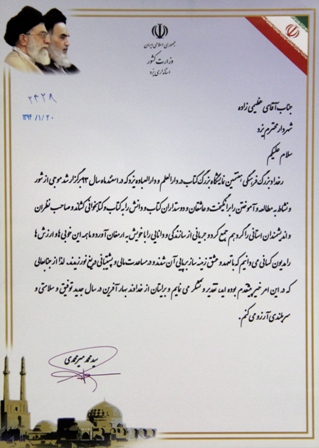 جمهوری اسلامی ایران
وزارت کشور
استانداری یزد
۲۴۲۸
۱۳۹۴/۱/۲۰
جناب آقای عظیمی زاده
شهردار محترم یزد
سلام علیکم
رخداد بزرگ فرهنگی هفتمین نمایشگاه بزرگ کتاب در دارالعلم و دارالعباده یزد که در اسفند ماه سال ۹۳ برگزار شد موجی از شور
و نشاط به مطالعه و آموختن را برانگیخت و عاشقان و دوستداران کتاب و دانش را به کتاب و کتابخوانی کشاند و صاحب نظران
و اندیشمندان استانی را گرد هم جمع کرد و جریانی از سازندگی و دانایی را با خویش به ارمغان آورد و ما همه این خوبی ها و ارزش ها
را مدیون کسانی می دانیم که با تعهد و عشق زمینه ساز برپایی آن شدند و در مساعدت مالی و پشتیبانی دریغ نورزیدند. لذا از جنابعالی
که در این امر خیر پیشقدم بوده اید، تقدیر و تشکر می نمایم و برایتان از خداوند بهار آفرین در سال جدید توفیق و سلامتی و
سربلندی آرزو می کنم.
سید محمد میرمحمدی